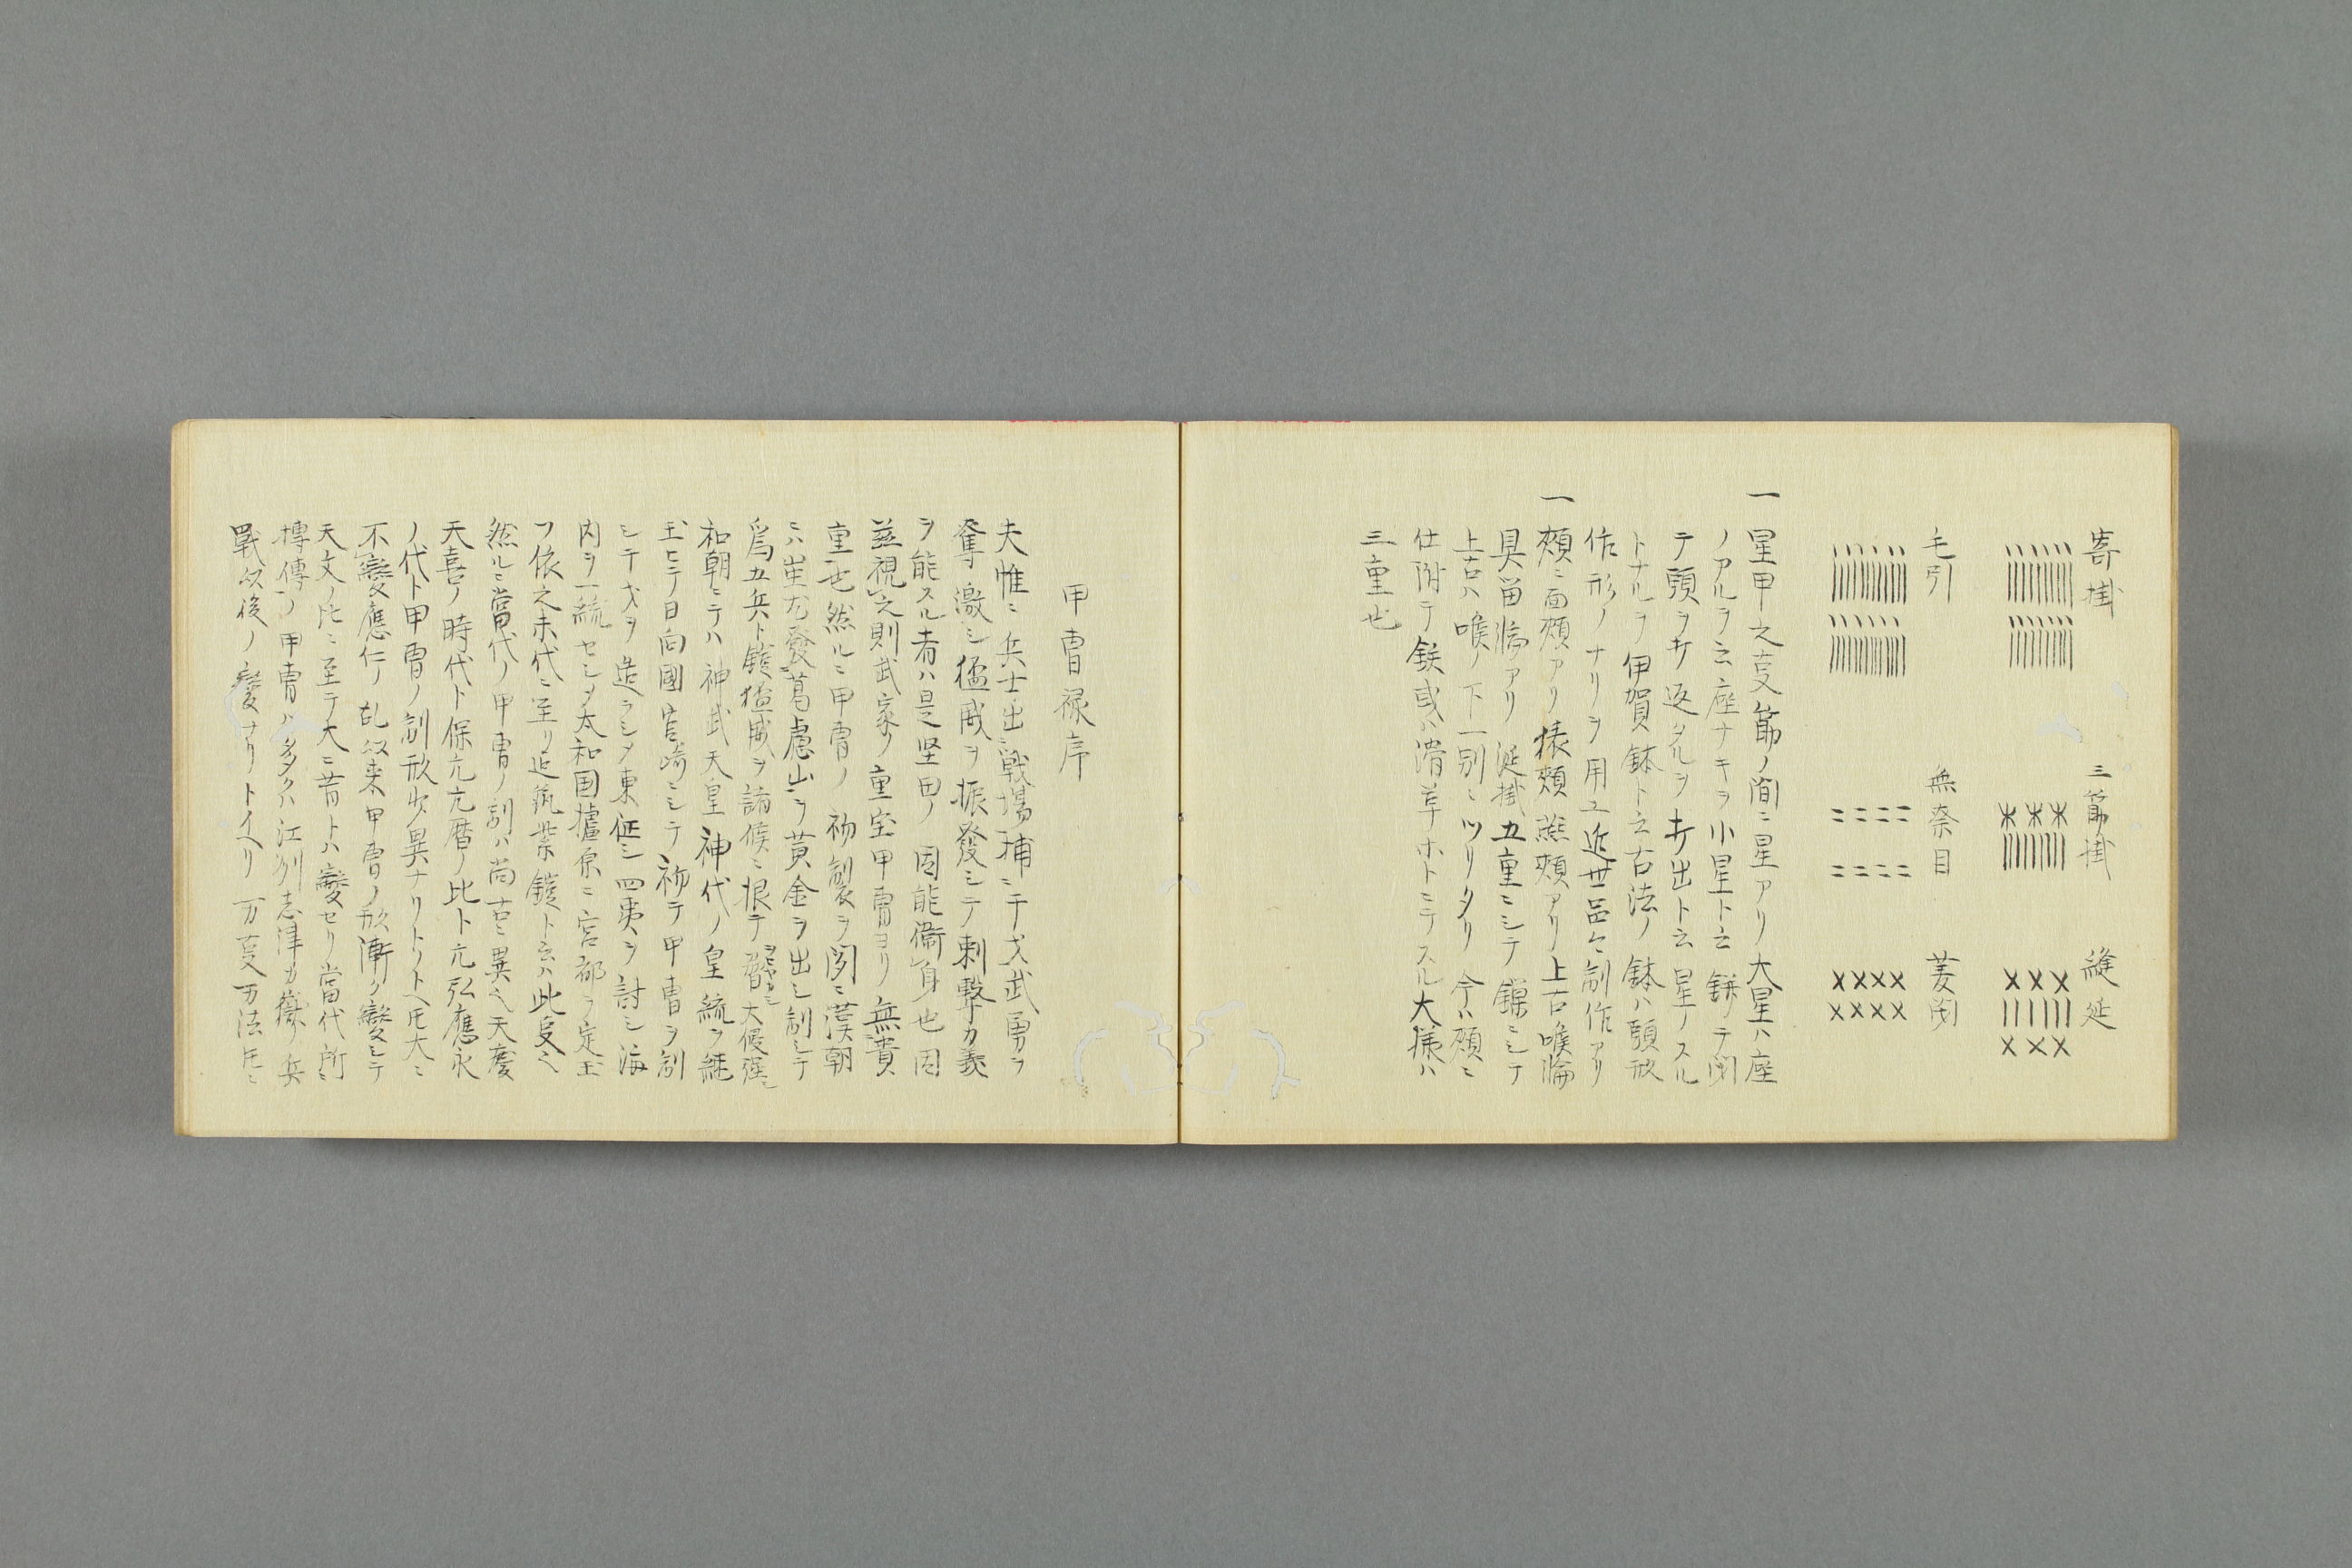 寄掛
三節掛
縫延
毛引
無奈目
菱閉
一 星甲之事節ノ間ニ星アリ大星ハ座
ノアルヲ云座ナキヲ小星ト云 餅リテ閉
テ頭ヲ折返タルヲ打出ト云 星ノスル
トナルヲ伊賀鉢ト云古法ノ鉢ハ頭形
作形ノナリヲ用ユ近世品々制作アリ
一 頬ニ面頬アリ猿頬燕頬アリ上古喉輪
具留輪アリ 延掛五重ニシテ鎖ニシテ
上古ハ喉ノ下一別ニツリタリ 今ハ頬ニ
仕附テ鉄或ハ滑革ホトニテスル大様ハ
三重也
甲冑禄序
夫惟ニ兵士出戦場捕ニ干戈武勇ヲ
奪激シ猛威ヲ振發シテ刺撃カ義
ヲ能スル者ハ是堅甲ノ固能衛身也因
茲視之則武家ノ重宝甲冑ヨリ無貴
重也然ルニ甲冑ノ初製ヲ閲ニ漢朝
ニハ蚩尤發葛盧山ヲ黄金ヲ出シ制シテ
為五兵ト鎧猛威ヲ諸侯ニ振テ 大優強
和朝ニテハ神武天皇神代ノ皇統ヲ継
玉ヒテ日向國宮崎ニシテ初テ甲冑ヲ制
シテ戈ヲ造ラシメ東征シ四夷ヲ討シ海
内ヲ一統セシメ太和国橿原ニ宮都ヲ定玉
フ依之末代ニ至リ延 業鎧ト云ハ此
然ルニ當代ノ甲冑ノ制ハ尚古ニ異也天慶
天喜ノ時代ト保元元暦ノ比ト元弘應永
ノ代ト甲冑ノ制形少異ナリトリトヘ𪜈大ニ
不變應仁ノ乱以来甲冑ノ形漸ク變シテ
天文ノ比ニ至テ大ニ昔トハ變セリ當代所ニ
摶傳ノ甲冑ハ多クハ江州志津カ嶽ノ兵
戦以後ノ變ナリトイヘリ 万事万法𪜈ニ